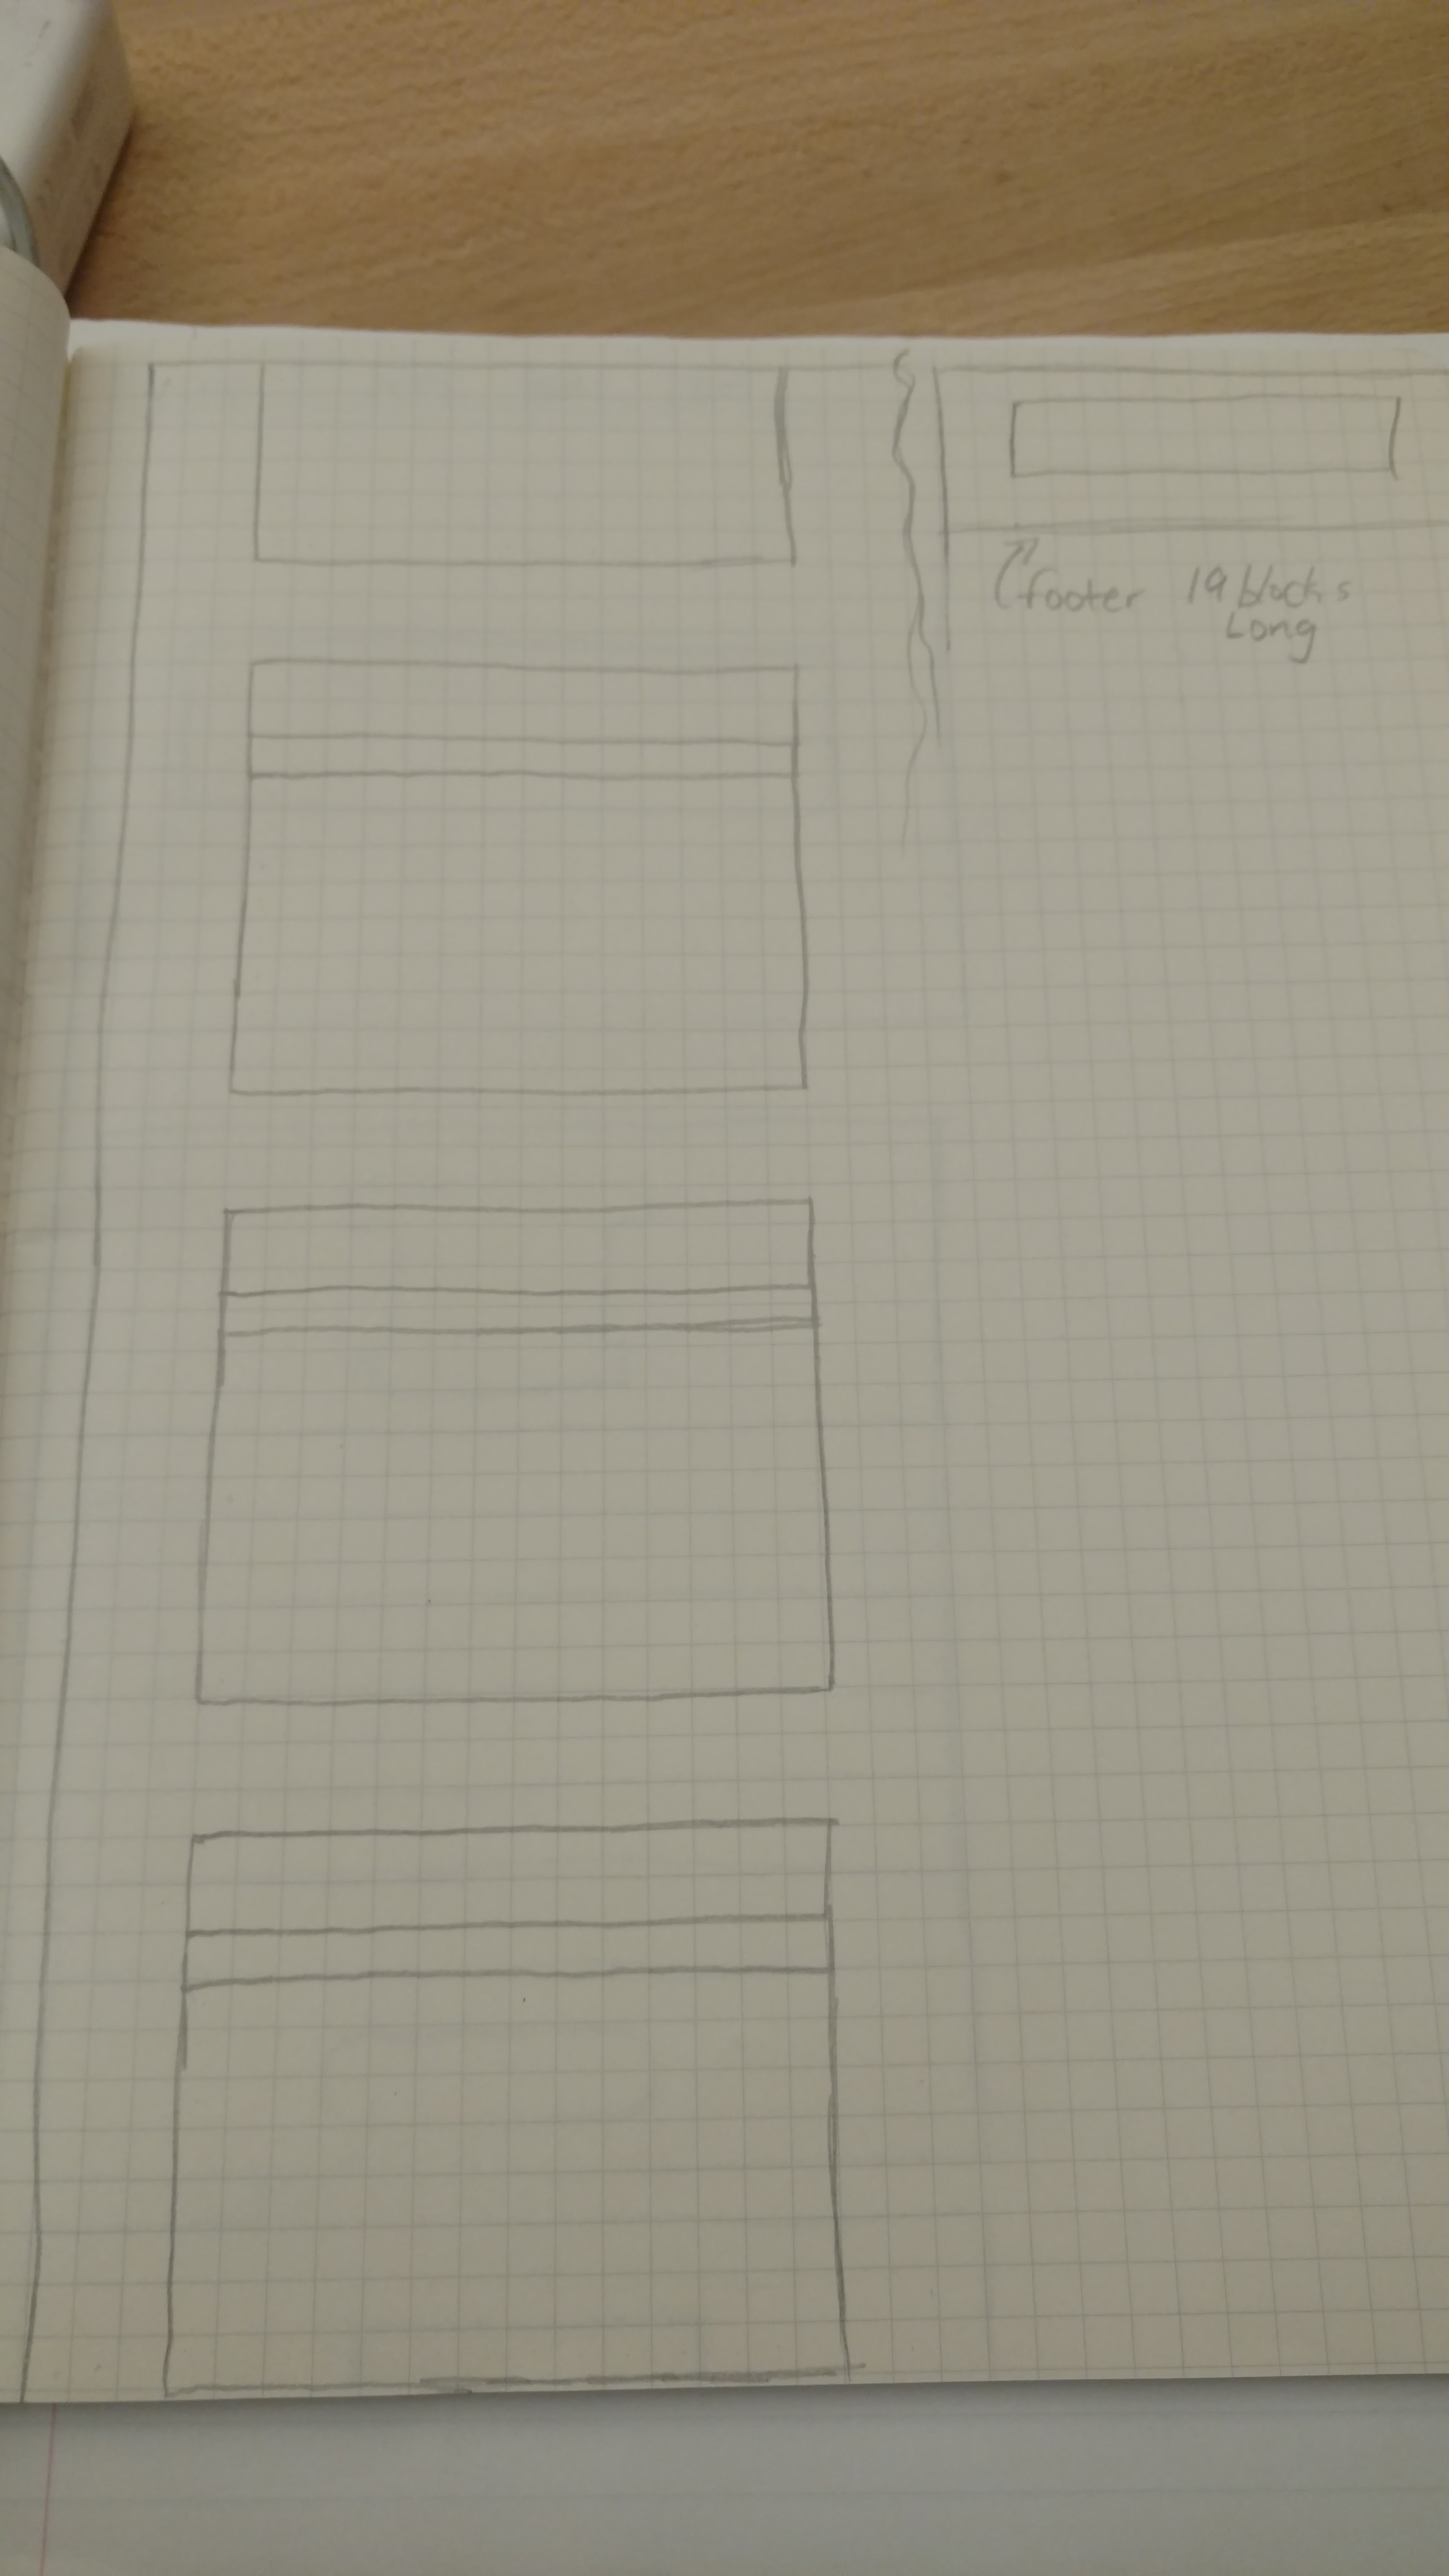 footer 19 blocks
Long